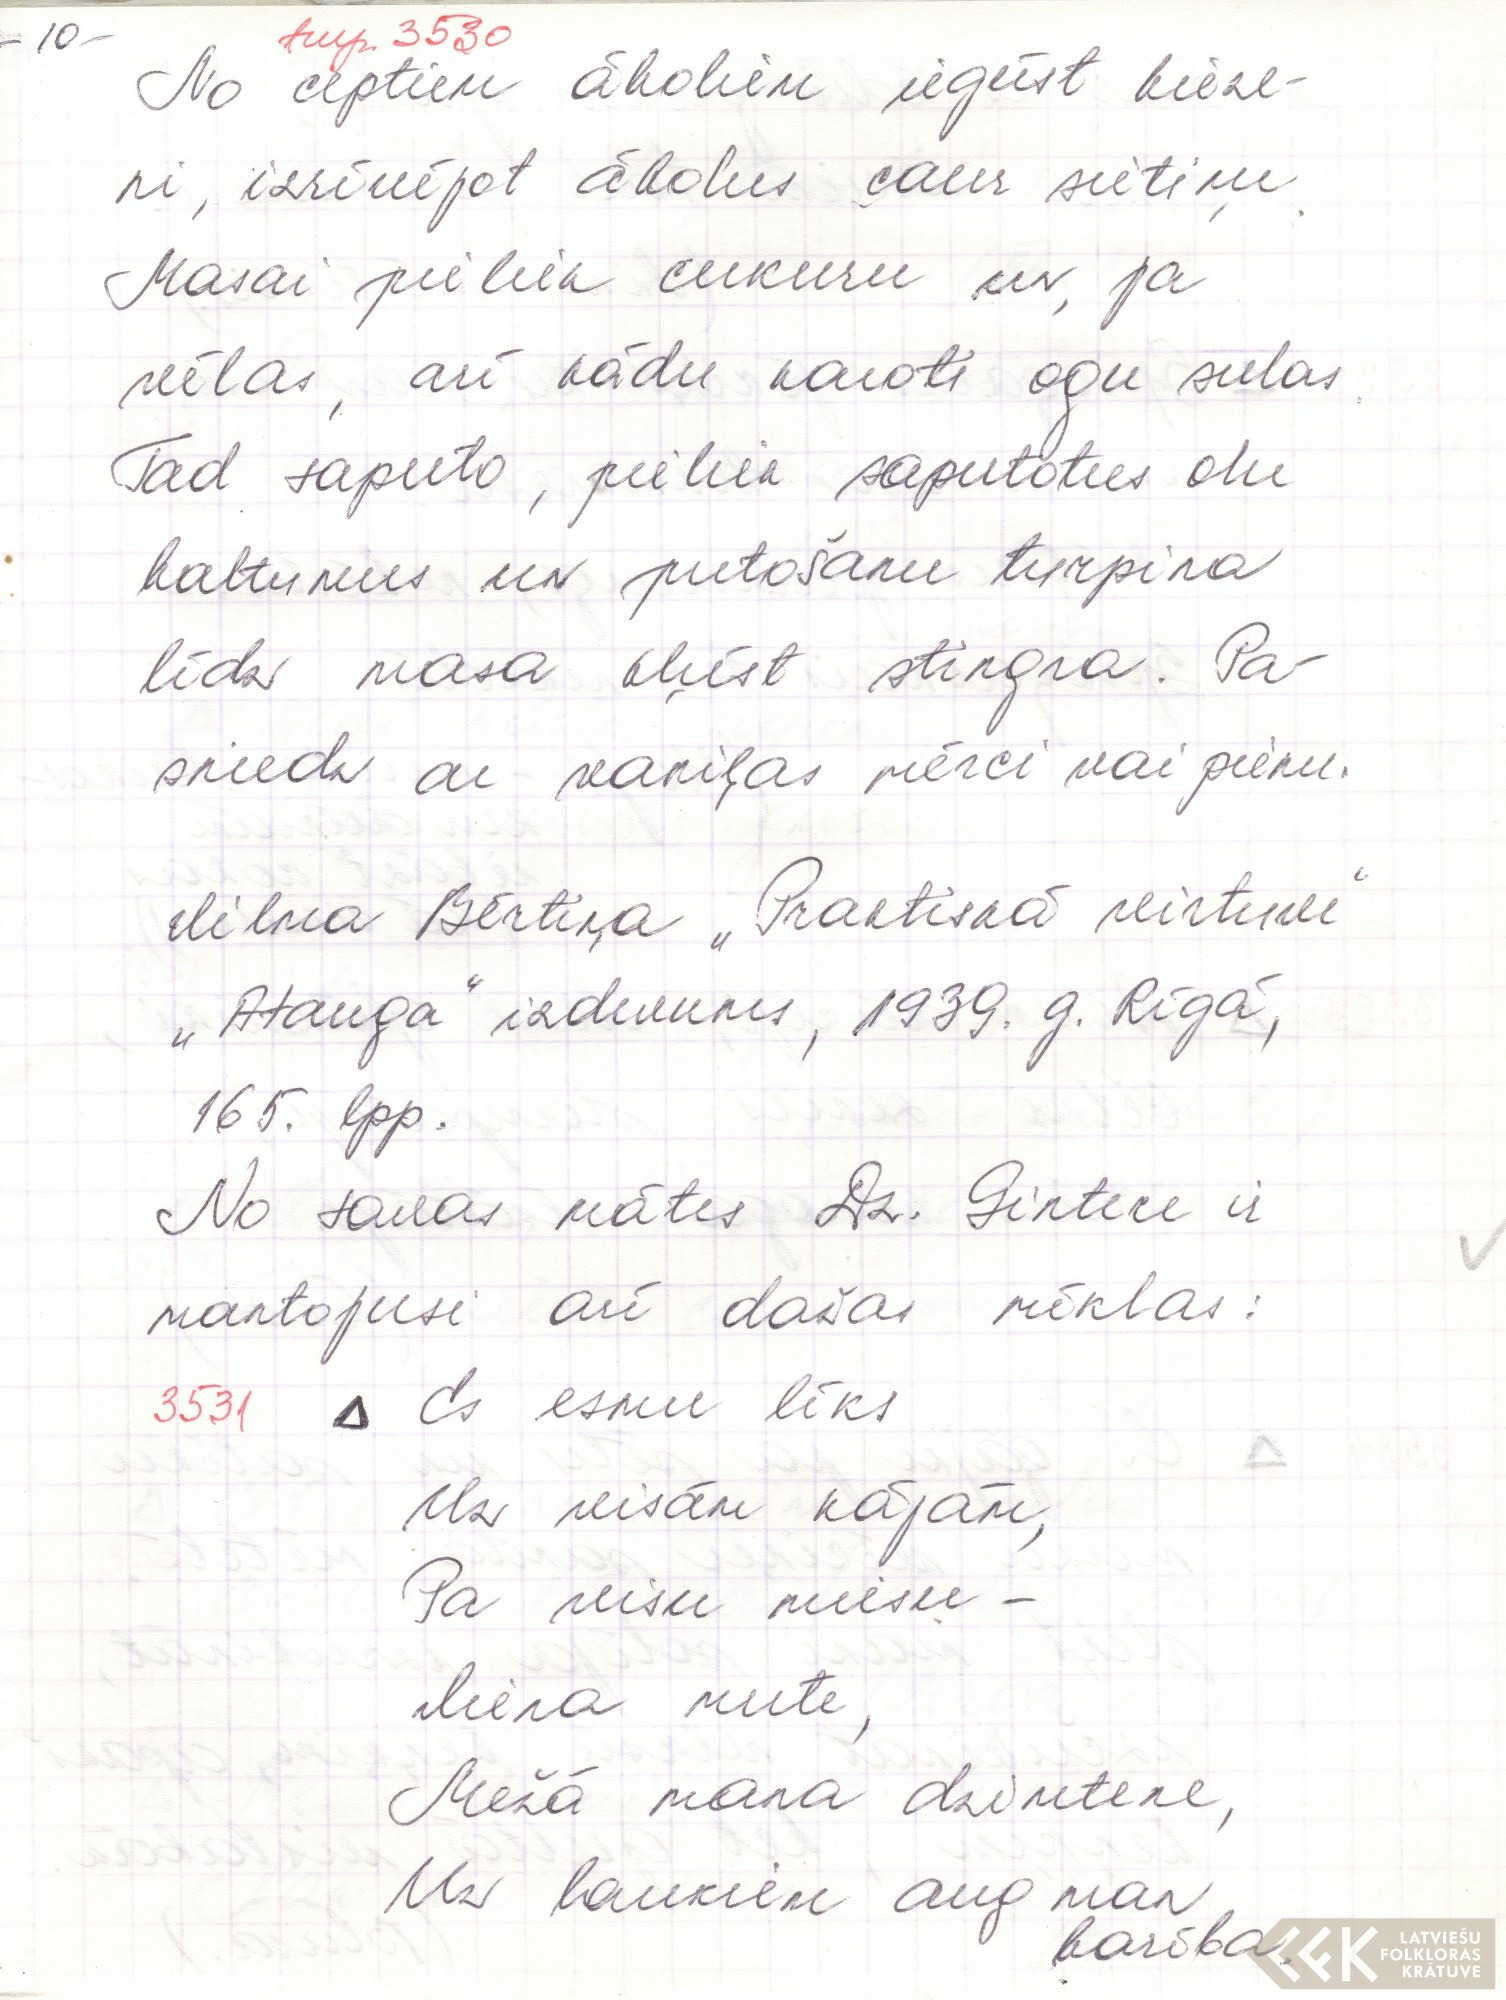 -10-
turp. 3530
No ceptiem āboliem iegūst bieze-
ni, izrīvējot ābolus caur sietiņu.
Masai pieliek cukuru un, ja
vēlas, arī kādu karoti ogu sulas.
Tad saputo, pieliek saputotus olu
baltumus un putošanu turpina
līdz masa kļūst stingra. Pa-
sniedz ar vaniļas mērci vai pienu.
Vilma Bērtiņa „Praktiskā virtuve“
„Atauga“ izdevums, 1939. g. Rīgā,
165. lpp.
No savas mātes Dz. Gintere ir
mantojusi arī dažas mīklas:
3531 Δ Es esmu līks
Uz visām kājām,
Pa visu muisu –
Viena mute,
Mežā mana dzimtene,
Uz laukiem aug man
barība.
LATVIEŠU
FOLKLORAS
KRĀTUVE